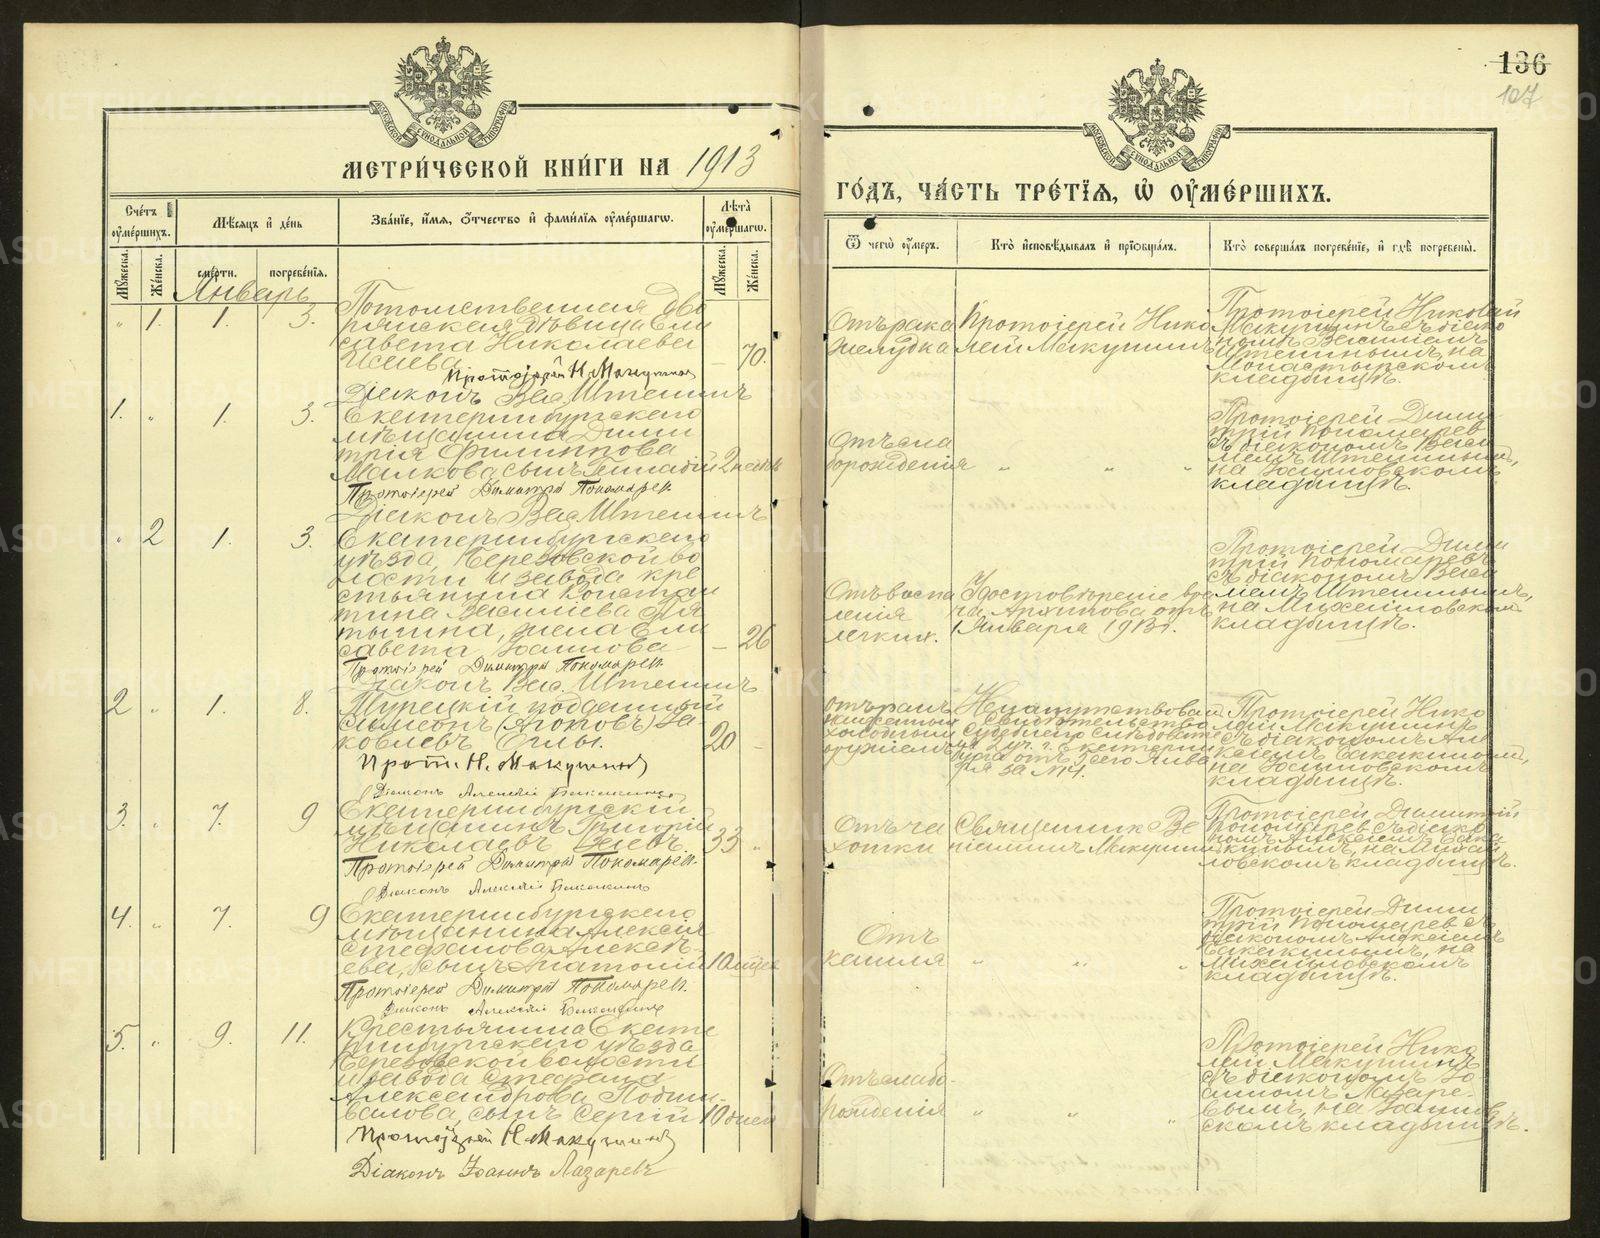 136
107
МОСКОВСКОЙ СѴНОДАЛЬНОЙ ТИПОГРАФІИ
МОСКОВСКОЙ СѴНОДАЛЬНОЙ ТИПОГРАФІИ
МЕТРИ́ЧЕСКОЙ КНИ́ГИ НА 1913
ГО́ДЪ, ЧА́СТЬ ТРЕ́ТІЯ, Ѡ҆ ОУ҆МЕ́РШИХЪ.
Сче́тъ оу҆ме́ршихъ.
Мѣ́сяцъ и҆ де́нь
Зва́ніе, и҆́мя, ѻ҆́тчество и҆ фами́лія оу҆ме́ршагѡ.
Лѣ́та оу҆ме́ршагѡ.
Ѿ чегѡ̀ оу҆́меръ.
Кто̀ и҆сповѣ́дывалъ и҆ прїѡбща́лъ.
Кто̀ соверша́лъ погребе́ніе, и҆ гдѣ̀ погребены̀.
Мꙋ́жеска.
Же́нска.
сме́рти.
погребе́нія.
Мꙋ́жеска.
Же́нска.
Январь
" 1. 1. 3.
Потомственная дво
рянская дѣвица Ели
савета Николаева
Исиева
— 70.
Протоіерей Н. Макушинъ
Діаконъ Вас. Штенинъ
Отъ рака
желудка
Протоіерей Нико
лай Макушинъ
Протоіерей Николай
Макушинъ съ діако
номъ Василіемъ
Штенинымъ, на
Монастырскомъ
кладбищѣ.
1. " 1. 3.
Екатеринбургскаго
мѣщанина Дими
трія Филиппова
Малкова сынъ Геннадій 2 недѣли
Протоіерей Димитрій Пономарев.
Діаконъ Вас. Штенинъ
Отъ сла
борожденія
" " "
Протоіерей Дими
трій Пономаревъ
съ діакономъ Васи
ліемъ Штенинымъ,
на Іоанновскомъ
кладбищѣ.
" 2 1. 3.
Екатеринбургскаго
уѣзда, Березовской во
лости и завода кре
стьянина Констан
тина Василіева
тыгина, жена Ели
савета Іоаннова
— 26
Протоіерей Димитрій Пономарев.
Діаконъ Вас. Штенинъ
Отъ воспа
ленія
легких.
Удостовѣреніе вра
ча Архипова отъ
1 Января 1913 г.
Протоіерей Дими
трій Пономаревъ
съ діакономъ Васи
ліемъ Штенинымъ,
на Михайловском
кладбищѣ.
2 " 1. 8.
Турецкій подданный
Симеонъ (Агоповъ) Яковлевъ Оглы.
20 —
Прот. Н. Макушинъ
Діаконъ Алексій Бакакинъ
Отъ ранъ
нанесенныхъ
холоднымъ
оружіемъ
Свидѣтельство
Судебнаго Слѣдовате
ля 2 уч. г. Екатерин
бурга отъ 5 сего Янва
ря за №4.
Протоіерей Нико
лай Макушинъ
съ діакономъ Але
ксіемъ Бакакинымъ,
на Іоанновскомъ
кладбищѣ.
3. " 7. 9
Екатеринбургскій
мѣщанинъ Григорій
Николаевъ
33 "
Протоіерей Димитрій Пономарев.
Діаконъ Алексій Бакакинъ
Отъ ча
хотки
Священникъ Ве
ніаминъ Макушинъ
Протоіерей Димитрій
Пономаревъ съ діако
номъ Алексіемъ Бака
кинымъ, на Михай
ловскомъ кладбищѣ.
4. " 7. 9
Екатеринбургскаго
мѣщанина Алексія
Стефанова Алексѣ-
ева, сынъ Анатолій 10 мѣсяц
Протоіерей Димитрій Пономарев.
Діаконъ Алексій Бакакинъ
Отъ
кашля
" " "
Протоіерей Дими
трій Пономаревъ съ
діакономъ Алексіемъ
Бакакинымъ, на
Михайловскомъ
кладбищѣ.
5. " 9. 11.
Крестьянина Екате
ринбургскаго уѣзда
Березовской волости
и завода Стефана
Александрова Подши-
валова, сынъ Сергій 10 дней
Протоіерей Н. Макушинъ
Діаконъ Іоаннъ Лазаревъ
Отъ слабо-
рожденія
" " "
Протоіерей Нико
лай Макушинъ
съ діакономъ Іо
анномъ Лазаре-
вымъ, на Іоаннов
скомъ кладбищѣ.